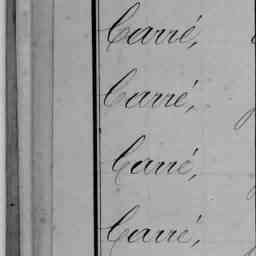 Carré,
Carré,
Carré,
Carré,